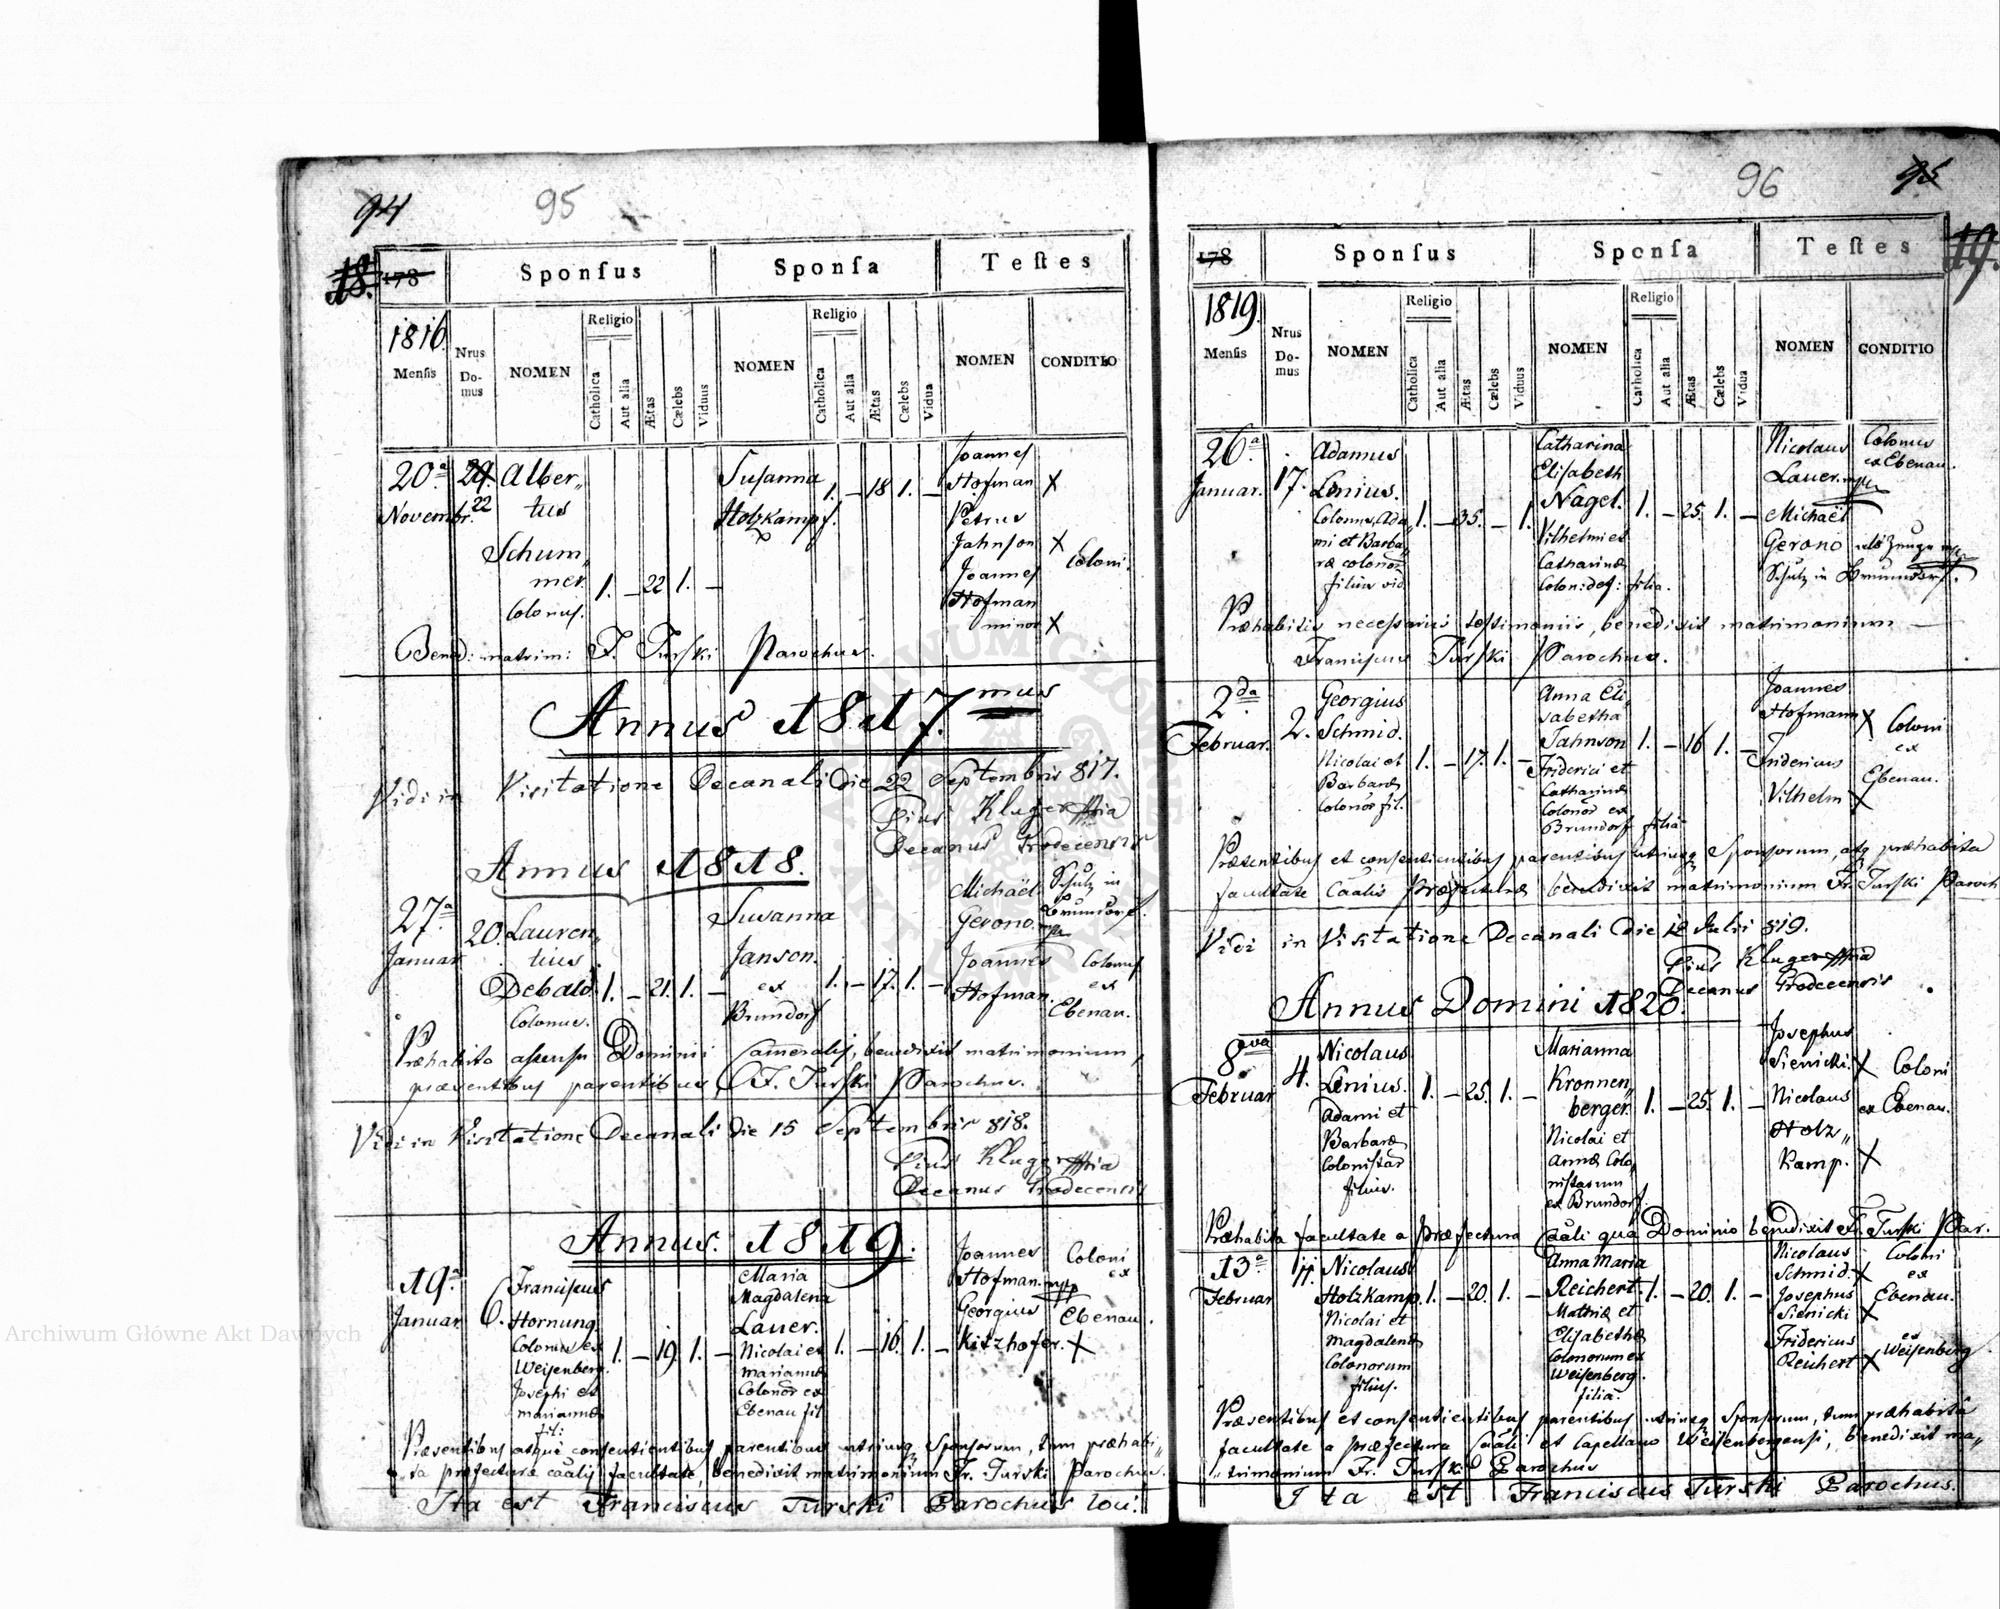 94
95
18.
178
Sponſus
Sponſa
Teſtes
1816.
Menſis
Nrus Domus
NOMEN
Religio
Catholica
Aut alia
Ætas
Cælebs
Viduus
NOMEN
Religio
Catholica
Aut alia
Ætas
Cælebs
Vidua
NOMEN
CONDITIO
20ª
Novembr.
24.
22
Alber„
tus
Schum„
mer
Colonus.
1. – 22 1. –
Susanna
Holzkampf.
1. – 18 1. –
Joannes
Hofman X
Petrus
Jahnson X
Joannes
Hofman
minor X
Coloni.
Bened: matrim: F. Turski Parochus.
Annus 1817.mus
Vidi in Visitatione Decanali die 22 Septembris 817.
Pius Kluger
Decanus Grodecensis
Annus 1818.
27ª
Januar
20.
Lauren„
tius
Debald
Colonus.
1. – 21. 1. –
Susanna
Janson.
ex
Brundorf
1. – 17. 1. –
Michaël
Gerono.
Schulz in
Brundorf.
Joannes
Hofman.
Colonus
ex
Ebenau.
Præhabito assensu Dominii Cameralis, benedixit matrimonium,
præsentibus parentibus F. Turski Parochus.
Vidi in Visitatione Decanali die 15 Septembris 818.
Pius Kluger
Decanus Grodecensis
Annus. 1819.
19ª
Januar
6.
Franciscus
Hornung.
Colonus ex
Weisenberg.
Josephi et
mariannæ
fil:
1. – 19. 1. –
Maria
Magdalena
Lauer.
Nicolai et
mariannæ
Colonor ex
Ebenau fil
1. – 16. 1. –
Joannes
Hofman.
Georgius
Kitzhofer. X
Coloni
ex
Ebenau.
Præsentibus atque consentientibus parentibus utriusq Sponsorum, tum præhabi„
„ta præfecturæ caalis facultate, benedixit matrimonium Fr. Turski Parochus.
Ita est Franciscus Turski Parochus
96
95
19.
178
Sponſus
Sponſa
Teſtes
1819.
Menſis
Nrus Domus
NOMEN
Religio
Catholica
Aut alia
Ætas
Cælebs
Viduus
NOMEN
Religio
Catholica
Aut alia
Ætas
Cælebs
Vidua
NOMEN
CONDITIO
26ª
Januar.
17.
Adamus
Lenius.
Colonus, Ada„
mi et Barba„
ræ colonor
filius vid
1. – 35. – 1.
Catharina
Elisabeth
Nagel.
Vilhelmi et
Catharinæ
Colon: def: filia.
1. – 25. 1. –
Nicolaus
Lauer.
Colonus
ex Ebenau.
Michaël
Gerono als Zeuge
Schulz in Brunndorf.
Præhabitis necessariis testimoniis, benedixit matrimonium
Franciscus Turski Parochus.
2da
Februar.
2.
Georgius
Schmid.
Nicolai et
Barbaræ
Colonor fil.
1. – 17. 1. –
Anna Eli„
sabetha
Jahnson
Friderici et
Catharinæ
Colonor ex
Brundorf filia
1. – 16 1. –
Joannes
Hofmann X
Fridericus
Vilhelm X
Coloni
ex
Ebenau.
Præsentibus et consentientibus parentibus utriusq Sponsorum, atq præhabita
facultate Caalis Præfecturæ benedixit matrimonium Fr. Turski Paroch
Vidi in Visitatione Decanali die 12 Julii 819.
Pius Kluger
Decanus Grodecensis
Annus Domini 1820.
8ava
Februar
4.
Nicolaus
Lenius.
Adami et
Barbaræ
Colonistar
filius.
1. – 25. 1. –
Marianna
Kronnen„
berger.
Nicolai et
Annæ Colo„
nistarum
ex Brundorf.
1. – 25. 1. –
Josephus
Sienicki. X
Nicolaus
Holz„
Kamp. X
Coloni
ex Ebenau.
Præhabita facultate a Præfectura Caali qua Dominio benedixit Fr. Turski Par.
13ª
Februar
11.
Nicolaus
Holzkamp.
Nicolai et
magdalenæ
Colonorum
filius.
1. – 20. 1. –
Anna Maria
Reichert.
Mathiæ et
Elisabethæ
Colonorum ex
Weisenberg.
filia.
1. – 20. 1. –
Nicolaus
Schmid. X
Josephus
Sienicki X
Fridericus
Reichert X
Coloni
ex
Ebenau.
ex
Weisenberg
Præsentibus et consentientibus parentibus utriusq Sponsorum, tum præhabita
facultate a præfectura Caali et Capellano Weisenbergensi, benedixit ma„
„trimonium Fr. Turski Parochus
Ita est Franciscus Turski Parochus.
Archiwum Główne Akt Dawnych